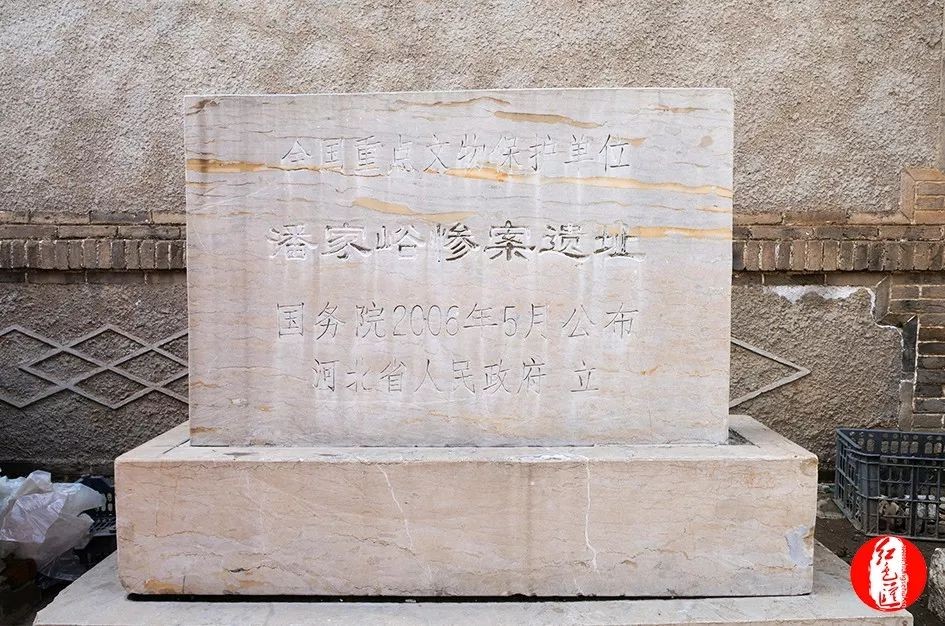 全国重点文物保护单位
潘家峪惨案遗址
国务院2006年5月公布
河北省人民政府 立
红色汇